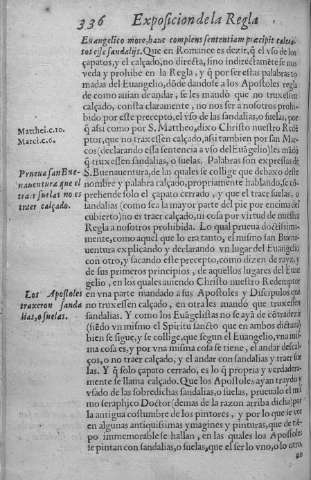 336 Exposicion de la Regla
Euangelico more hanc complens sententiam præcipit calcia-
tos esse sandalijs. Que en Romance es dezir, q̃ el vso de los
çapatos, y el calçado, no directa, sino indirectamẽte se nos
veda y prohibe en la Regla, y q̃ por ser estas palabras to-
madas del Euangelio, dõde dandose a los Apostoles regla
de como auian de andar, se les mandò que no truxessen
calçado, consta claramente, no nos ser a nosotros prohi-
bido por este precepto, el vso de las sandalias, o suelas, por-
Matthei.c.10. q̃ assi como por S. Mattheo, dixo Christo nuestro Redẽ-
Marci.c.6. ptor, que no traxessen calçado, assi tambien por san Mar-
cos (declarando essa sentencia a vso del Euãgelio) les mãdò
q̃ truxessen sandalias, o suelas. Palabras son expressas de
Prueua san Bue- S. Buenauentura, de las quales se collige que debaxo deste
nauentura que el nombre y palabra calçado, propriamente hablando, se cõ-
traer suelas no es prehende solo el çapato cerrado, y que el traer suelas, o
traer calçado. sandalias (como sea la mayor parte del pie por encima des-
cubierto) no es traer calçado, ni cosa por virtud de nuestra
Regla a nosotros prohibida. Lo qual prueua doctissima-
mente, como aquel que lo era tanto, el mismo san Buena-
uentura explicando y declarando vn lugar del Euangelio
con otro, y sacando este precepto, como dizen de rayz, y
de sus primeros principios, de aquellos lugares del Euan-
gelio, en los quales auiendo Christo nuestro Redemptor
Los Apostoles en vna parte mandado a sus Apostoles y Discipulos que
traxeron sanda no truxessen calçado, en otra les mandò que truxessen
lias, o suelas. sandalias. Y como los Euãgelistas no se aya de cõtradezir
(siẽdo vn mismo el Spiritu sancto que en ambos dictaua)
bien se sigue, y se collige, que segun el Euangelio, vna mis-
ma cosa es, y por vna misma cosa se tiene, el andar descal-
ços, o no traer calçado, y el andar con sandalias y traer sue-
las. Y q̃ solo çapato cerrado, es lo q̃ propria y verdadera-
mente se llama calçado. Que los Apostoles ayan traydo y
vsado de las sobredichas sandalias, o suelas, prueualo el mis-
mo seraphico Doctor (demas de la razon arriba dicha) por
la antigua costumbre de los pintores, y por lo que se vee
en algunas antiquissimas ymagines y pinturas, que de tiẽ-
po immemorable se hallan, en las quales los Apostoles
se pintan con sandalias, o suelas, que el ser lo vno, o lo otro,